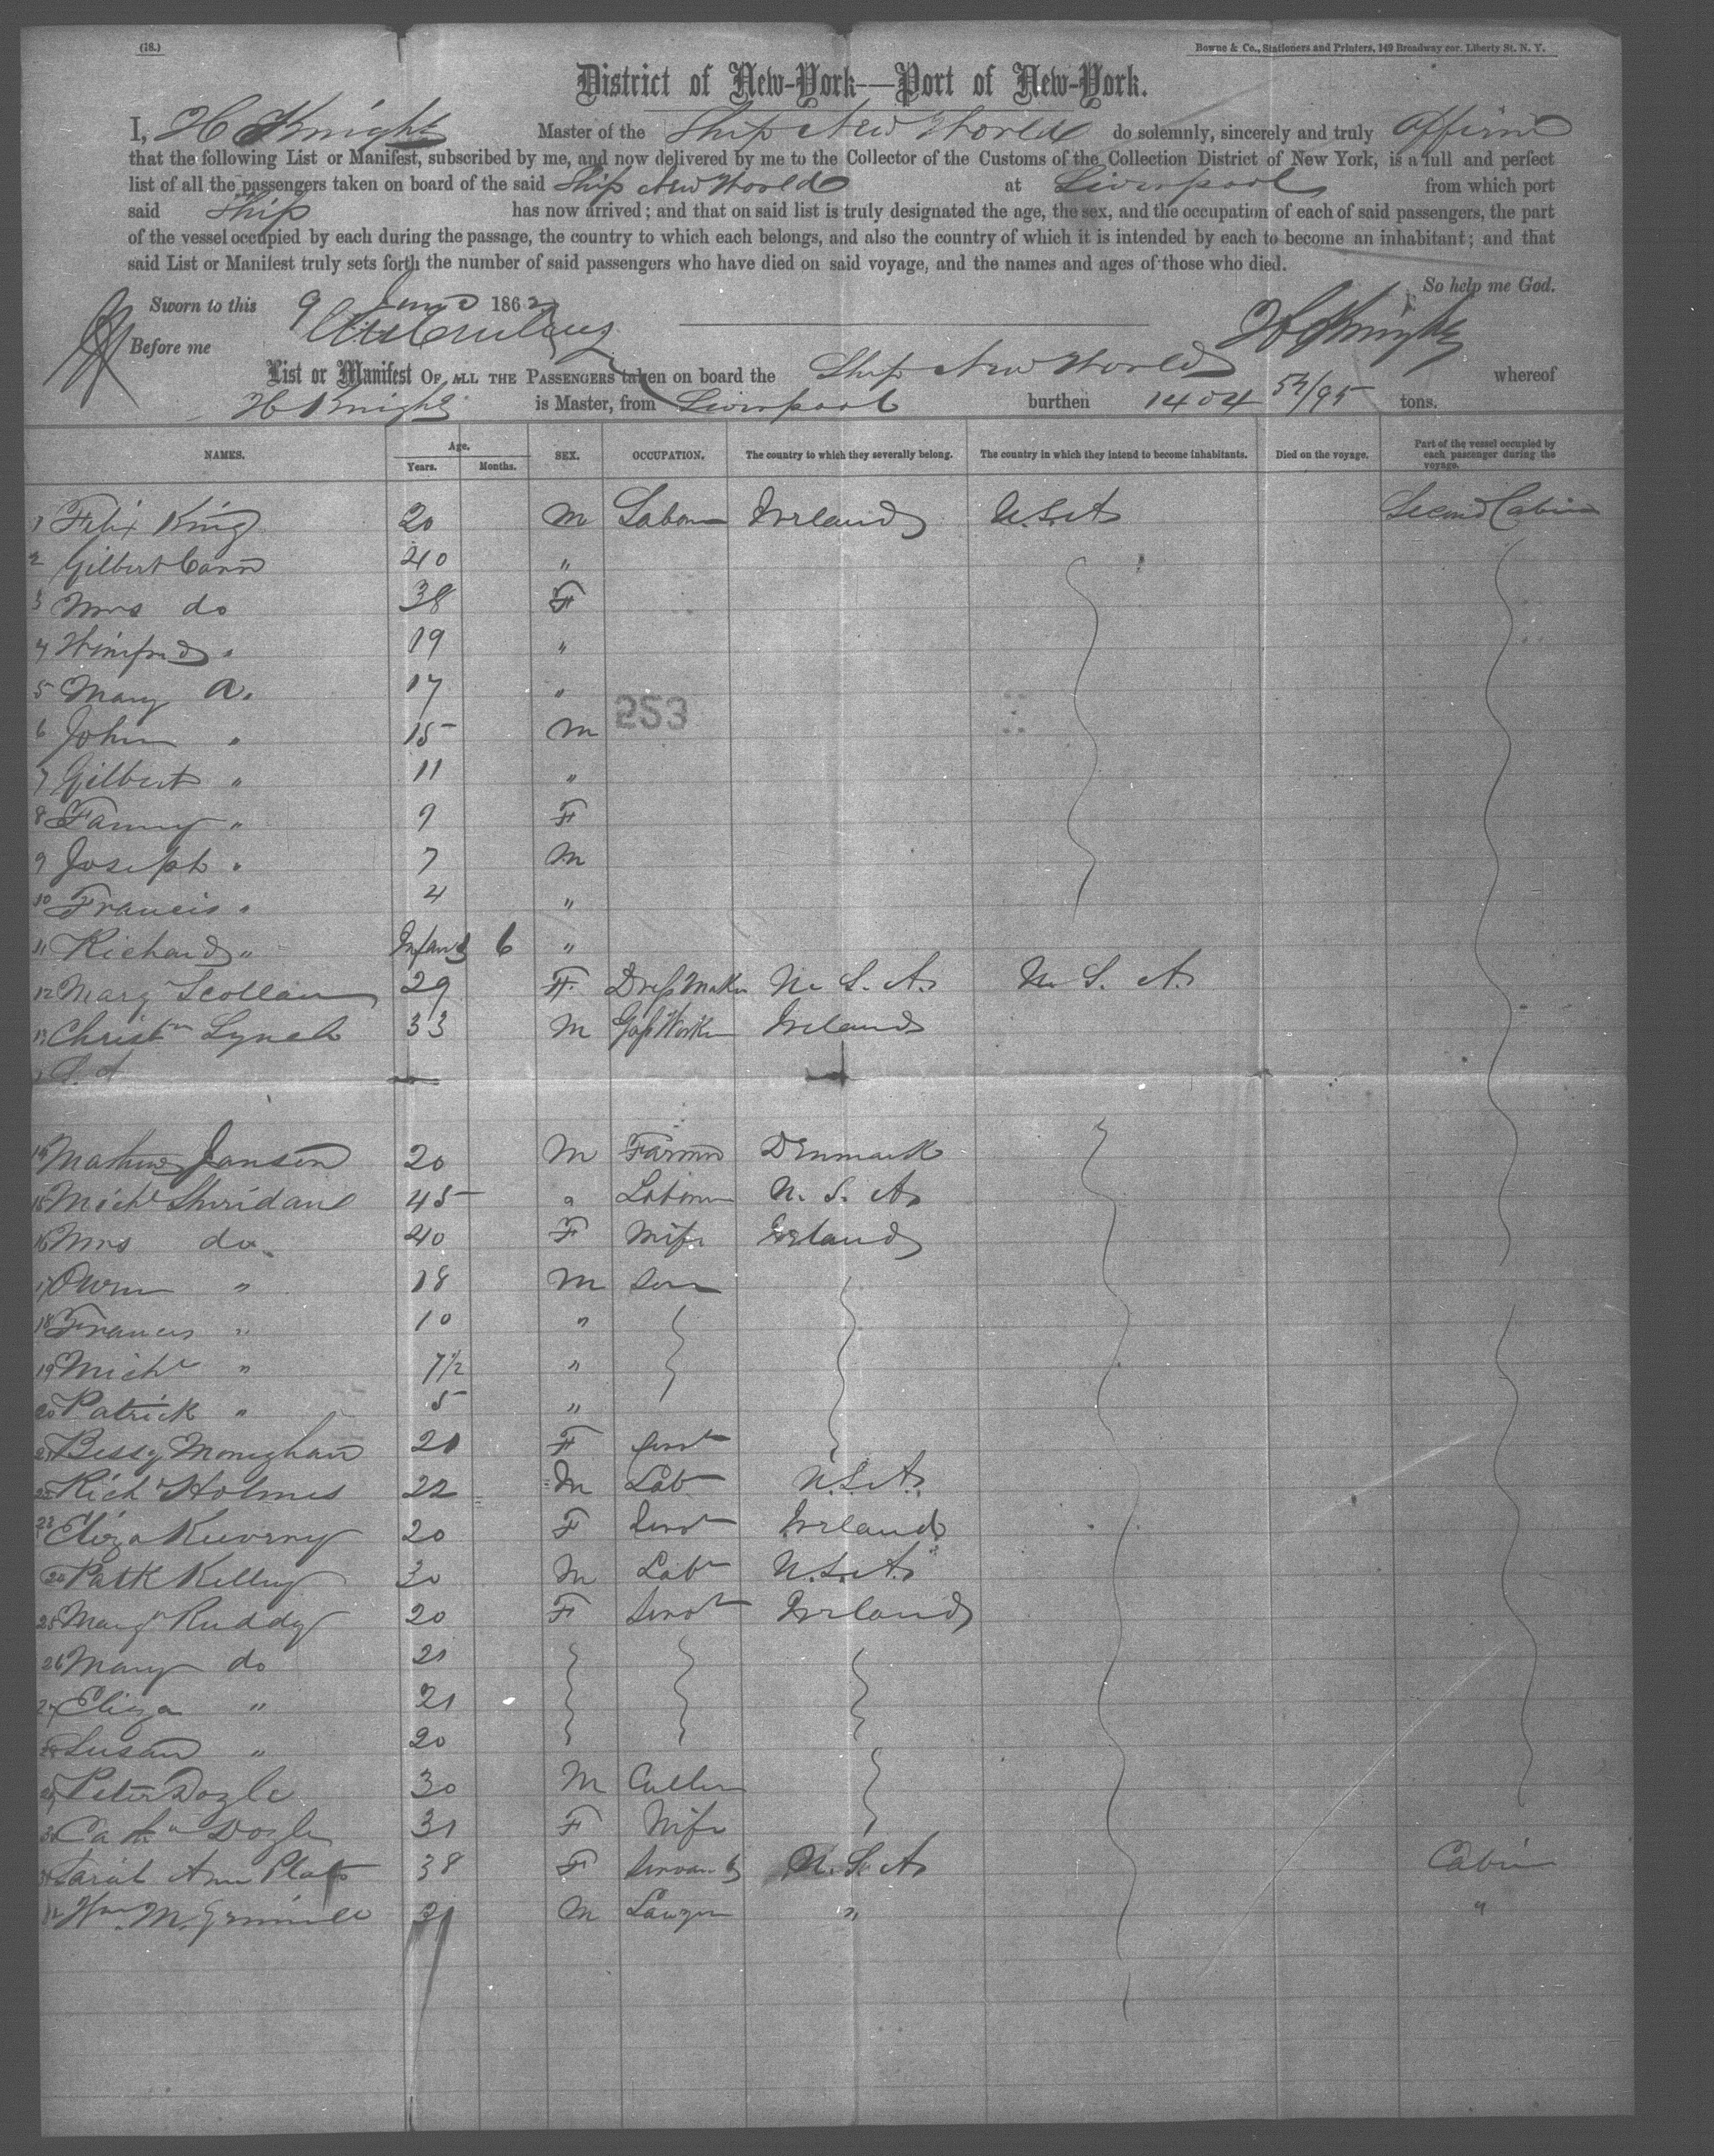 (18.)
Bowne & Co., Stationers and Printers, 149 Broadway cor. Liberty St. N. Y.
District of New-York—Port of New-York.
I, H Knight Master of the Ship New World do solemnly, sincerely and truly affirm
that the following List or Manifest, subscribed by me, and now delivered by me to the Collector of the Customs of the Collection District of New York, is a full and perfect
list of all the passengers taken on board of the said Ship New World at Liverpool from which port
said Ship has now arrived; and that on said list is truly designated the age, the sex, and the occupation of each of said passengers, the part
of the vessel occupied by each during the passage, the country to which each belongs, and also the country of which it is intended by each to become an inhabitant; and that
said List or Manifest truly sets forth the number of said passengers who have died on said voyage, and the names and ages of those who died.
So help me God.
Sworn to this 9 1862
H Knight
Before me
List or Manifest OF ALL THE PASSENGERS taken on board the Ship New World whereof
H Knight is Master, from Liverpool burthen 1404 52/95 tons.
NAMES. Age. Years. Months. SEX. OCCUPATION. The country to which they severally belong. The country in which they intend to become inhabitants. Died on the voyage. Part of the vessel occupied by each passenger during the voyage.
1 Felix King 20 M Labour Ireland U.S.A Second Cabin
2 Gilbert Cann 40 "
3 Mrs do 38 F
4 Winifred " 19 "
5 Mary A. 17 "
253
6 John " 15 M
7 Gilbert " 11 "
8 Fanny " 9 F
9 Joseph " 7 M
10 Francis " 4 "
11 Richard " Infant 6 "
12 Marg Scollan 29 F Dress Maker U. S. A. U. S. A.
13 Christn Lynch 33 M Ireland
14 Jansen 20 M Farmer Denmark
15 Michl Sheridan 45 " Labour U. S. A.
16 Mrs do 40 F Wife Ireland
17 Owen " 18 M Son
18 Francis " 10 "
19 Michl " 7 1/2 "
20 Patrick " 5 "
21 Bessy Monighan 20 F Servt
22 Richd Holmes 22 M Lab U.S.A.
23 Eliza 20 F Servt Ireland
24 Patk Kelley 30 M Labr U.S.A.
25 Margt Ruddy 20 F Servt Ireland
26 Mary do 21
27 Eliza " 21
28 Susan " 20
29 Peter Doyle 30 M
30 Cathn Doyle 31 F Wife
31 Sarah Ann Platt 38 F Servant U. S. A. Cabin
32 Wm M. 31 M Lawyer " "